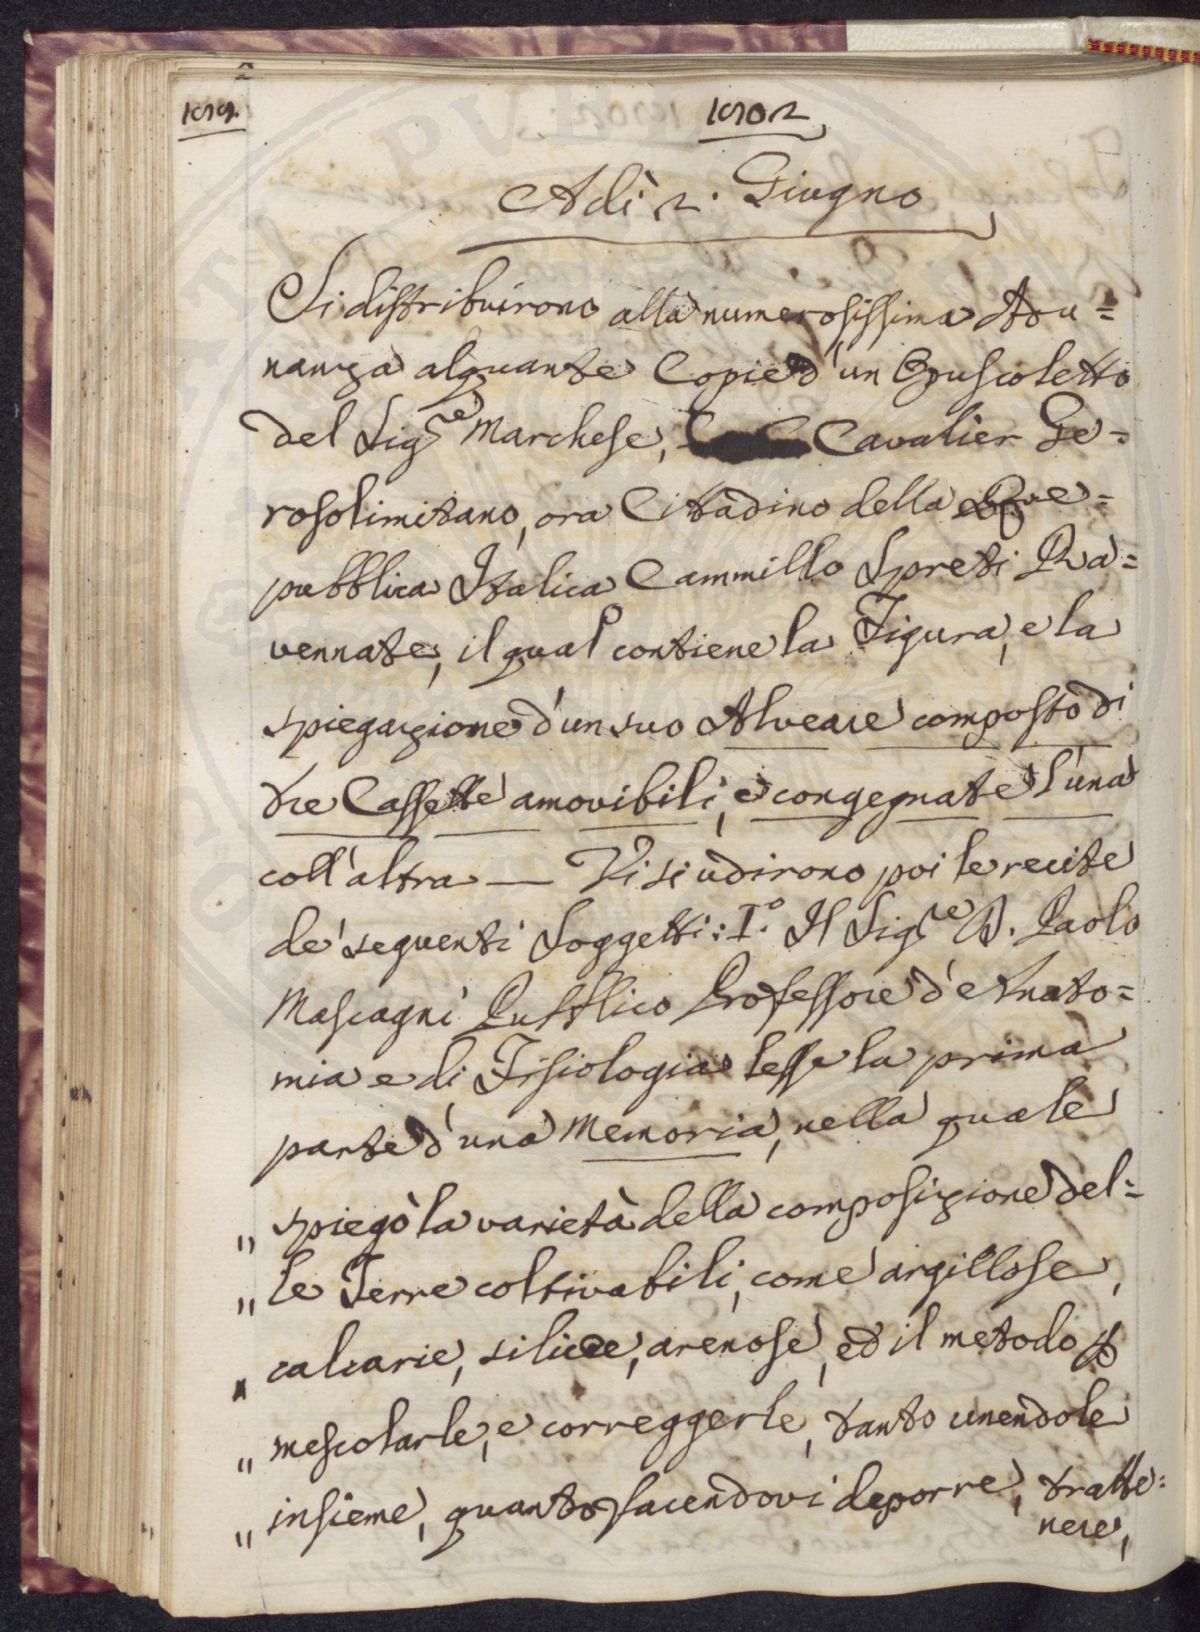 1802
Adì 2. Giugno
Si distribuirono alla numerosissima Adu=
nanza alquante Copie d'un Opuscoletto
del Sig.re Marchese, Cavalier Ge=
rosolimitano, ora Cittadino della Re=
pubblica Italica Cammillo Spreti Ra=
vennate, il qual contiene la Figura, e la
spiegazione d'un suo Alveare composto di
tre Cassette amovibili, e congegnate l'una
coll'altra — Vi si udirono poi le recite
de' seguenti Soggetti: I.° Il Sig.re D. Paolo
Mascagni Pubblico Professore d'Anato=
mia e di Fisiologia lesse la prima
parte d'una Memoria, nella quale
„ spiegò la varietà della composizione del=
„ le Terre coltivabili, come argillose,
„ calcarie, silicee, arenose, ed il metodo
„ mescolarle, e correggerle, tanto unendole
„ insieme, quanto facendovi deporre, tratte=
nere,